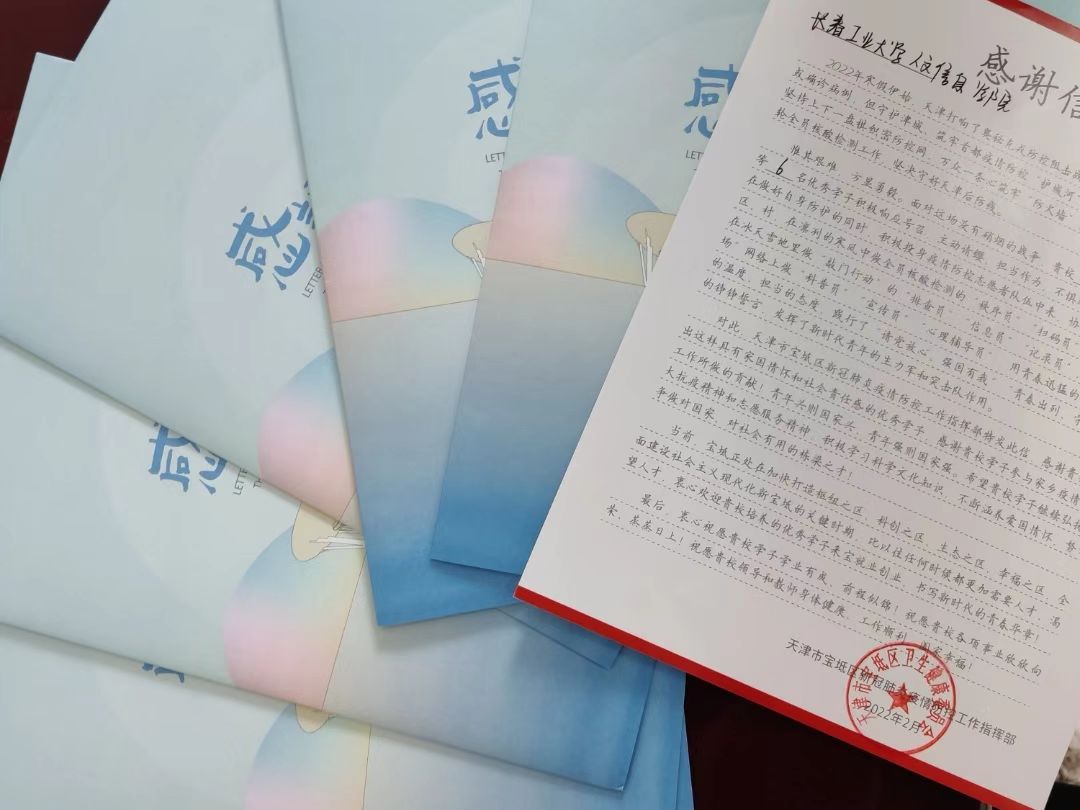 感
LETTER
感
LETTER
感
LETTER
感
LETTER
长春工业大学人文信息学院
感谢信
2022年寒假伊始，天津打响了奥秘克戎防控阻击战
或确诊病例，但守护津城，筑牢首都疫情防控“护城河
坚持上下一盘棋织密防控网，万众一条心筑牢“防火墙”
轮全员核酸检测工作，坚决守好天津后防线。
惟其艰难，方显勇毅。面对这场没有硝烟的战争，贵校
等6名优秀学子积极响应号召，主动请缨，担当作为，不惧
在做好自身防护的同时，积极投身疫情防控志愿者队伍中来，协
区、村，在凛冽的寒风中做全员核酸检测的“秩序员”“扫码员
在冰天雪地里做“敲门行动”的“排查员”“信息员”“记录员”
场，网络上做“科普员”“宣传员”“心理辅导员”，用青春迅猛的
的温度、担当的态度，践行了“请党放心，强国有我”
的铮铮誓言，发挥了新时代青年的生力军和突击队作用。
对此，天津市宝坻区新冠肺炎疫情防控工作指挥部特发此信，感谢贵
出这样具有家国情怀和社会责任感的优秀学子，感谢贵校学子参与家乡疫情
工作所做的贡献！青年兴则国家兴，青年强则国家强。希望贵校学子继续弘扬
大抗疫精神和志愿服务精神，积极学习科学文化知识，不断涵养爱国情怀，
争做对国家、对社会有用的栋梁之才！
当前，宝坻正处在加快打造枢纽之区、科创之区、生态之区、幸福之区，全
面建设社会主义现代化新宝坻的关键时期，比以往任何时候都更加需要人才、渴
望人才，衷心欢迎贵校培养的优秀学子来宝就业创业，书写新时代的青春华章！
最后，衷心祝愿贵校学子学业有成、前程似锦！祝愿贵校各项事业欣欣向
荣、蒸蒸日上！祝愿贵校领导和教师身体健康、工作顺利、阖家幸福！
天津市宝坻区新冠肺炎疫情防控工作指挥部
2022年2月
天津市宝坻区卫生健康委员会